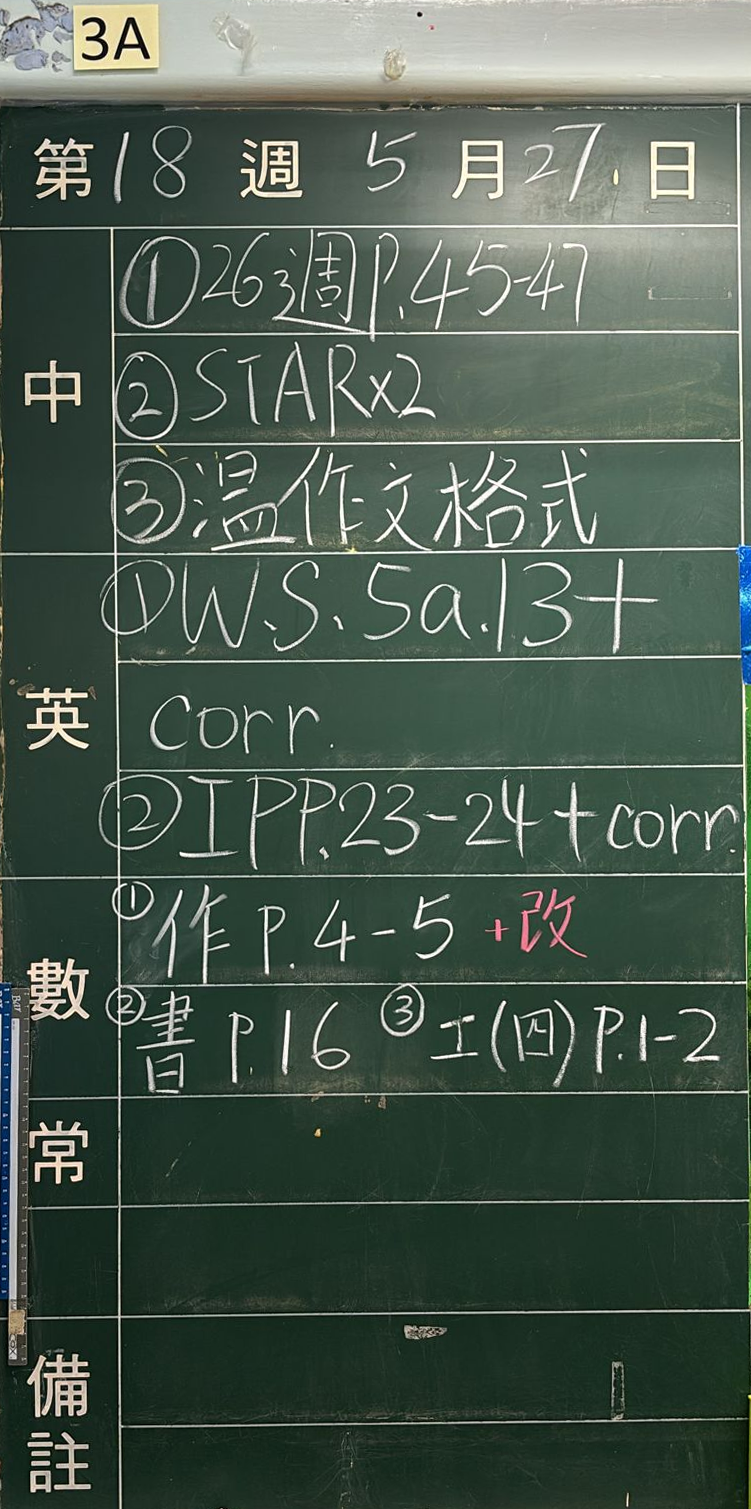 3A
第18週 5月27日
中
①26週P.45-47
②STAR×2
③溫作文格式
英
①W.S. 5a.13+
corr.
②IPP.23-24+corr.
數
①作 P.4-5 +改
②書 P.16 ③工(四)P.1-2
常
備註